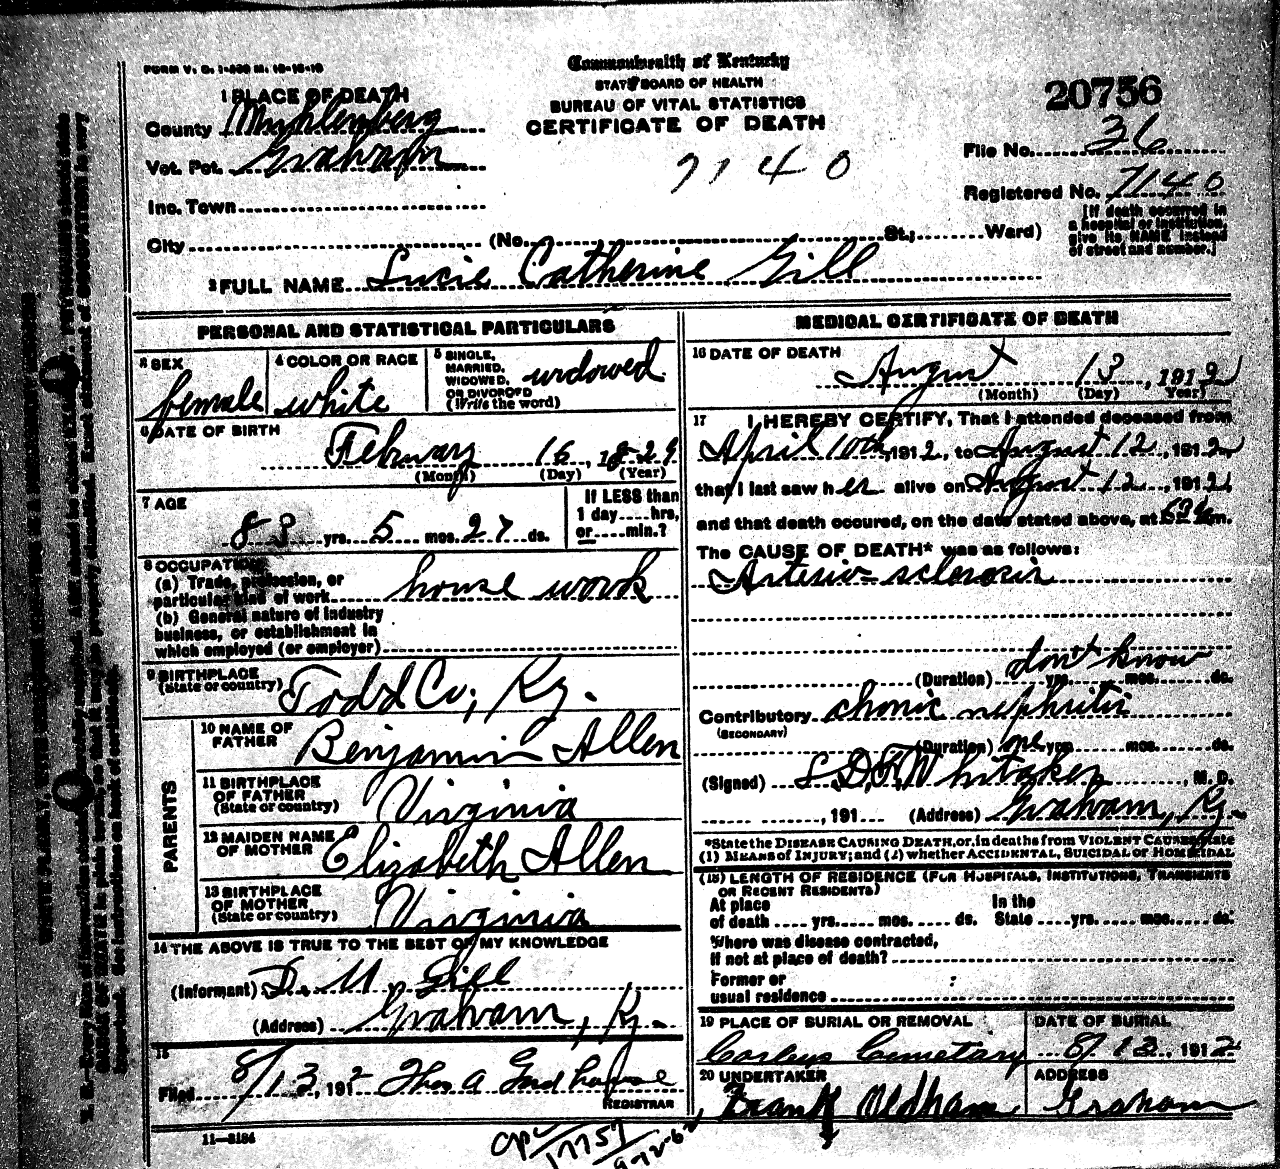 FORM V. S. 1-450 M. 12-15-10
Commonwealth of Kentucky
STATE BOARD OF HEALTH
BUREAU OF VITAL STATISTICS
CERTIFICATE OF DEATH
20756
1 PLACE OF DEATH
County Muhlenberg
Vot. Pct. Graham
Inc. Town
7140
File No. 36
Registered No. 7140
[If death occurred in
a hospital or institution
give its NAME instead
of street and number.]
City (No. St.; Ward)
2 FULL NAME Lucie Catherine Gill
PERSONAL AND STATISTICAL PARTICULARS
3 SEX
female
4 COLOR OR RACE
white
5 SINGLE,
MARRIED,
WIDOWED,
OR DIVORCED
(Write the word)
widowed
6 DATE OF BIRTH
February 16, 1829
(Month) (Day) (Year)
7 AGE
83 yrs. 5 mos. 27 ds.
If LESS than
1 day hrs,
or min.?
8 OCCUPATION
(a) Trade, profession, or
particular kind of work house work
(b) General nature of industry
business, or establishment in
which employed (or employer)
9 BIRTHPLACE
(State or country) Todd Co, Ky.
PARENTS
10 NAME OF
FATHER Benjamin Allen
11 BIRTHPLACE
OF FATHER
(State or country) Virginia
12 MAIDEN NAME
OF MOTHER Elizabeth Allen
13 BIRTHPLACE
OF MOTHER
(State or country) Virginia
14 THE ABOVE IS TRUE TO THE BEST OF MY KNOWLEDGE
(Informant) D. M. Gill
(Address) Graham, Ky.
15
Filed 8/13, 1912 Thos A
REGISTRAR
11-3184
MEDICAL CERTIFICATE OF DEATH
16 DATE OF DEATH
August 13, 1912
(Month) (Day) Year)
17 I HEREBY CERTIFY, That I attended deceased from
April 10th, 1912, to August 12, 1912
that I last saw her alive on August 12, 1912,
and that death occured, on the date stated above, at m.
The CAUSE OF DEATH* was as follows:
Arterio-sclerosis
don't know
(Duration) yrs. mos. ds.
Contributory chonic nephritis
(SECONDARY)
(Duration) one yrs. mos. ds.
(Signed) Whitaker, M. D.
, 191 (Address) Graham, Ky.
*State the DISEASE CAUSING DEATH, or, in deaths from VIOLENT CAUSES, state
(1) MEANS OF INJURY; and (2) whether ACCIDENTAL, SUICIDAL or HOMICIDAL
(18) LENGTH OF RESIDENCE (FOR HOSPITALS, INSTITUTIONS, TRANSIENTS
OR RECENT RESIDENTS)
At place
of death yrs. mos. ds.
In the
State yrs. mos. ds.
Where was disease contracted,
if not at place of death?
Former or
usual residence
19 PLACE OF BURIAL OR REMOVAL
Corleys Cemetary
DATE OF BURIAL
8/13, 1912
20 UNDERTAKER
Frank Oldham
ADDRESS
Graham